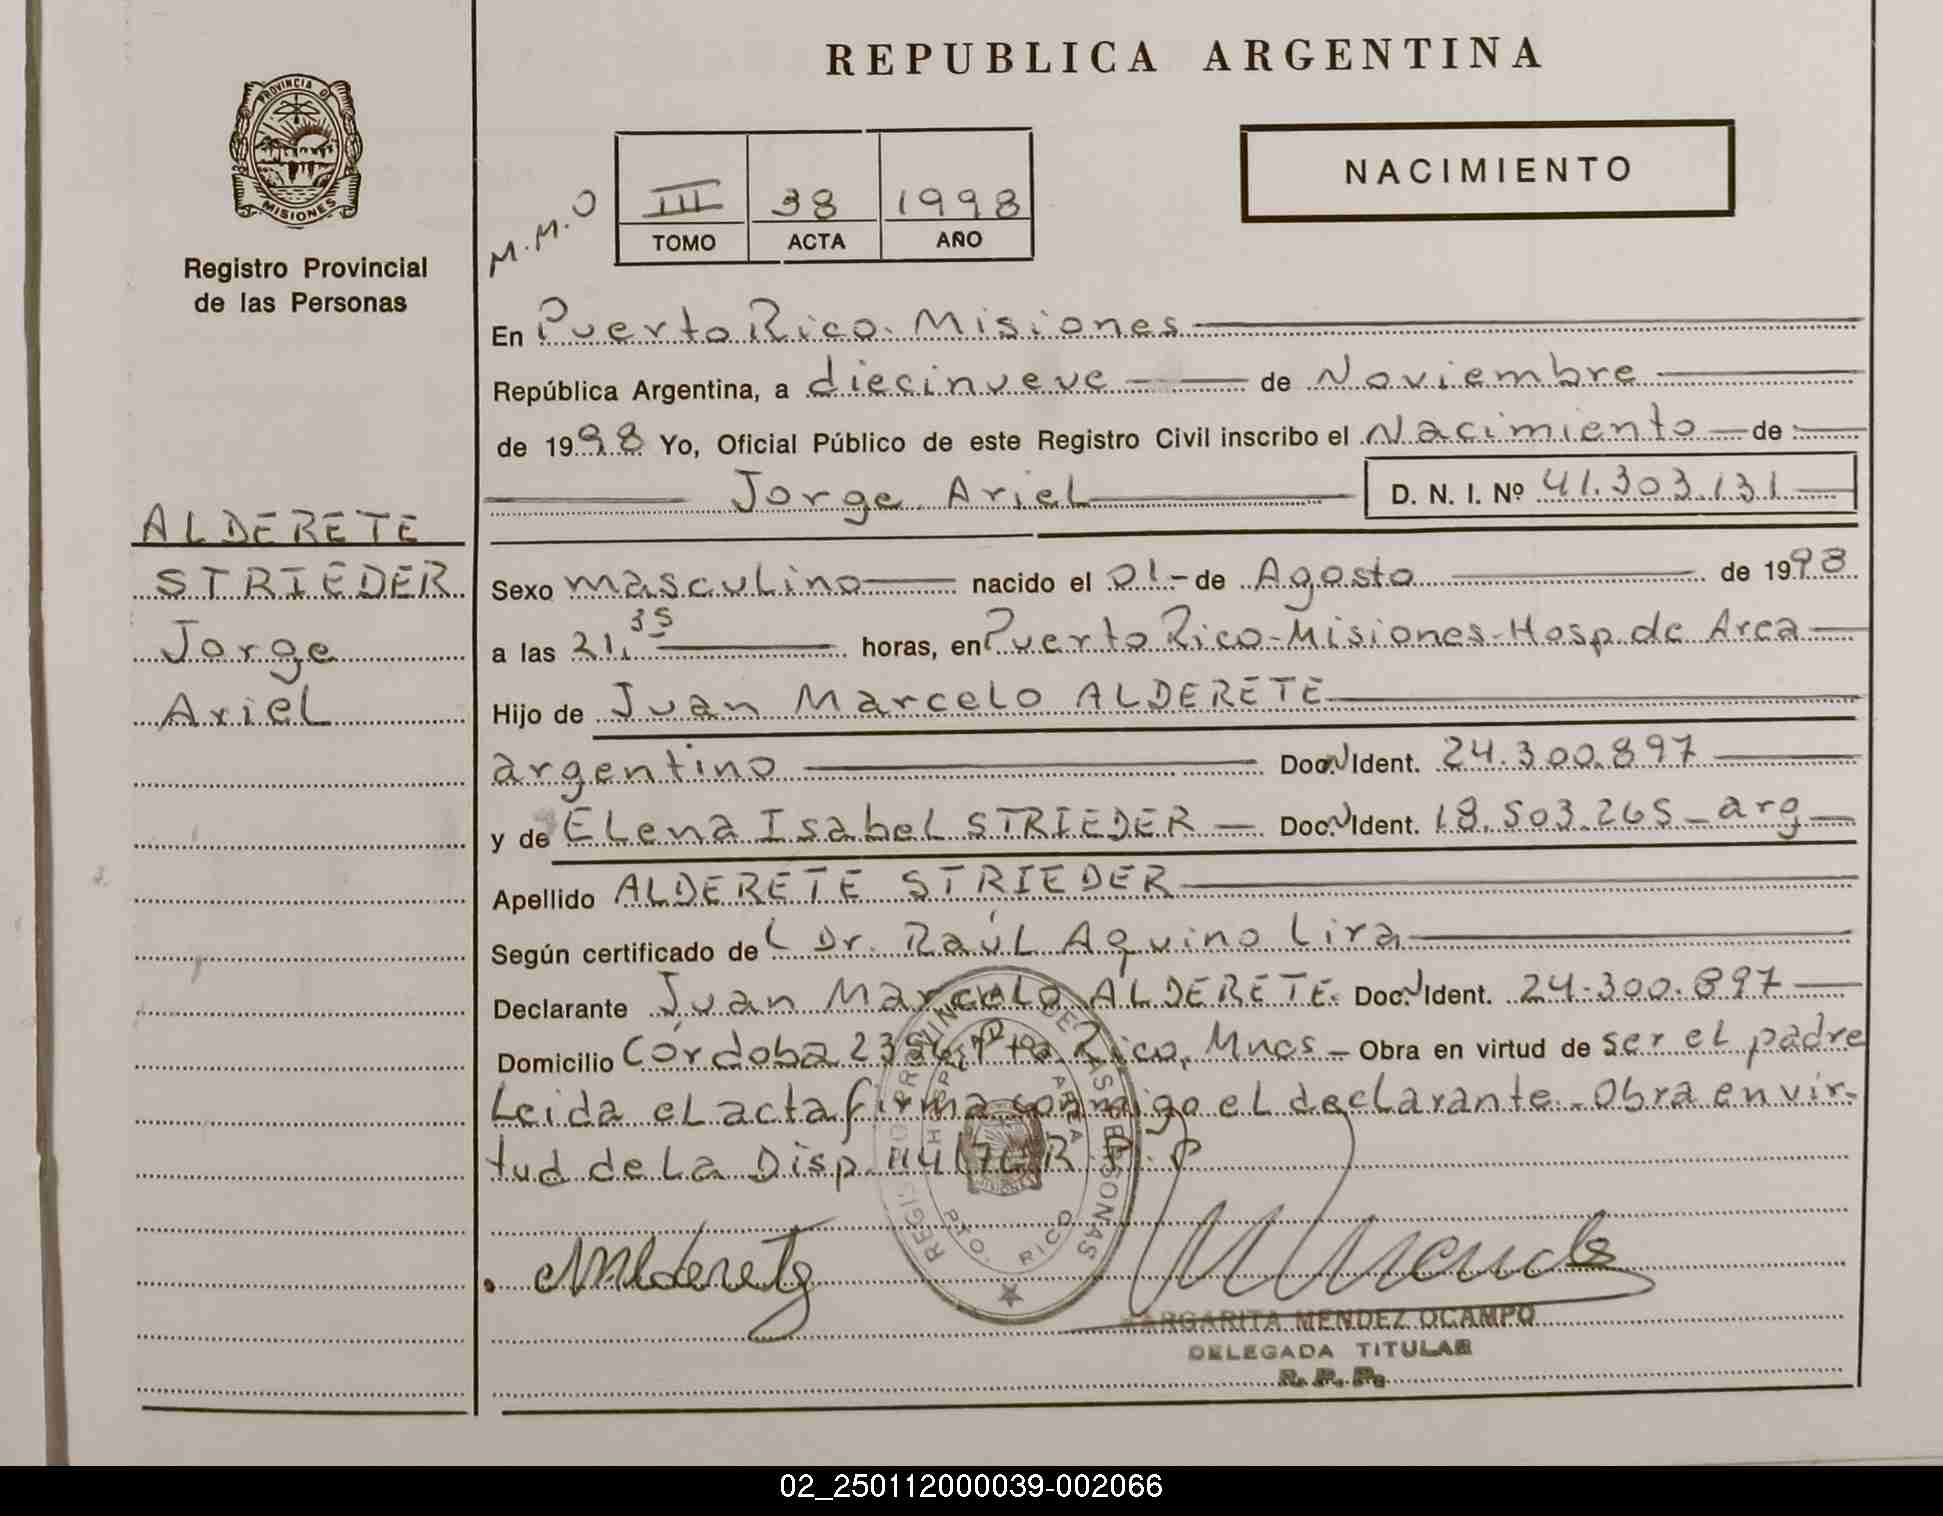 REPUBLICA ARGENTINA
PROVINCIA D
MISIONES
Registro Provincial
de las Personas
NACIMIENTO
M.M.O
III 38 1998
TOMO ACTA AÑO
En Puerto Rico. Misiones
República Argentina, a diecinueve de Noviembre
de 1998 Yo, Oficial Público de este Registro Civil inscribo el Nacimiento de
Jorge Ariel D. N. I. Nº 41.303.131
ALDERETE
STRIEDER
Jorge
Ariel
Sexo masculino nacido el 01- de Agosto de 1998
a las 21,35 horas, en Puerto Rico-Misiones-Hosp.de Area
Hijo de Juan Marcelo ALDERETE
argentino Doc. Ident. 24.300.897
y de Elena Isabel STRIEDER Doc. Ident. 18.503.265 - arg
Apellido ALDERETE STRIEDER
Según certificado del Dr. Raúl Aquino Lira
Declarante Juan Marcelo ALDERETE. Doc. Ident. 24.300.897
Domicilio Córdoba Pto Rico, Mnes - Obra en virtud de ser el padre
Leida el acta firma conmigo el declarante. Obra en vir-
tud de la Disp.
REGISTRO PROVINCIAL DE LAS PERSONAS
AREA
PTO. RICO
MARGARITA MENDEZ OCAMPO
DELEGADA TITULAR
R. P. P.
02_250112000039-002066